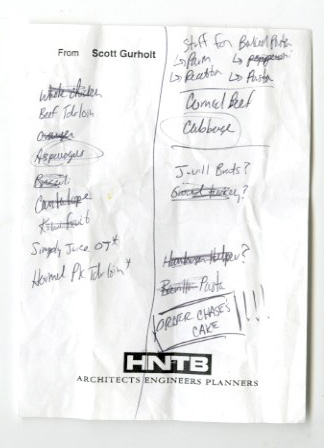 From Scott Gurholt
Whole Chicken
Beef Tdrloin
Oranges
Asparagus
Broccoli
Cantelope
Kiwi fruit
Simply Juice OJ*
Hormel Pk Tdrloin*
Stuff for Baked Pasta
↳ Parm ↳ pepperoni
↳ Ricotta ↳ Pasta
Corned Beef
Cabbage
J-vill Brats?
Ground turkey?
Hamburger Helper?
Barilla Pasta
ORDER CHASE'S
CAKE !!!!
HNTB
ARCHITECTS ENGINEERS PLANNERS